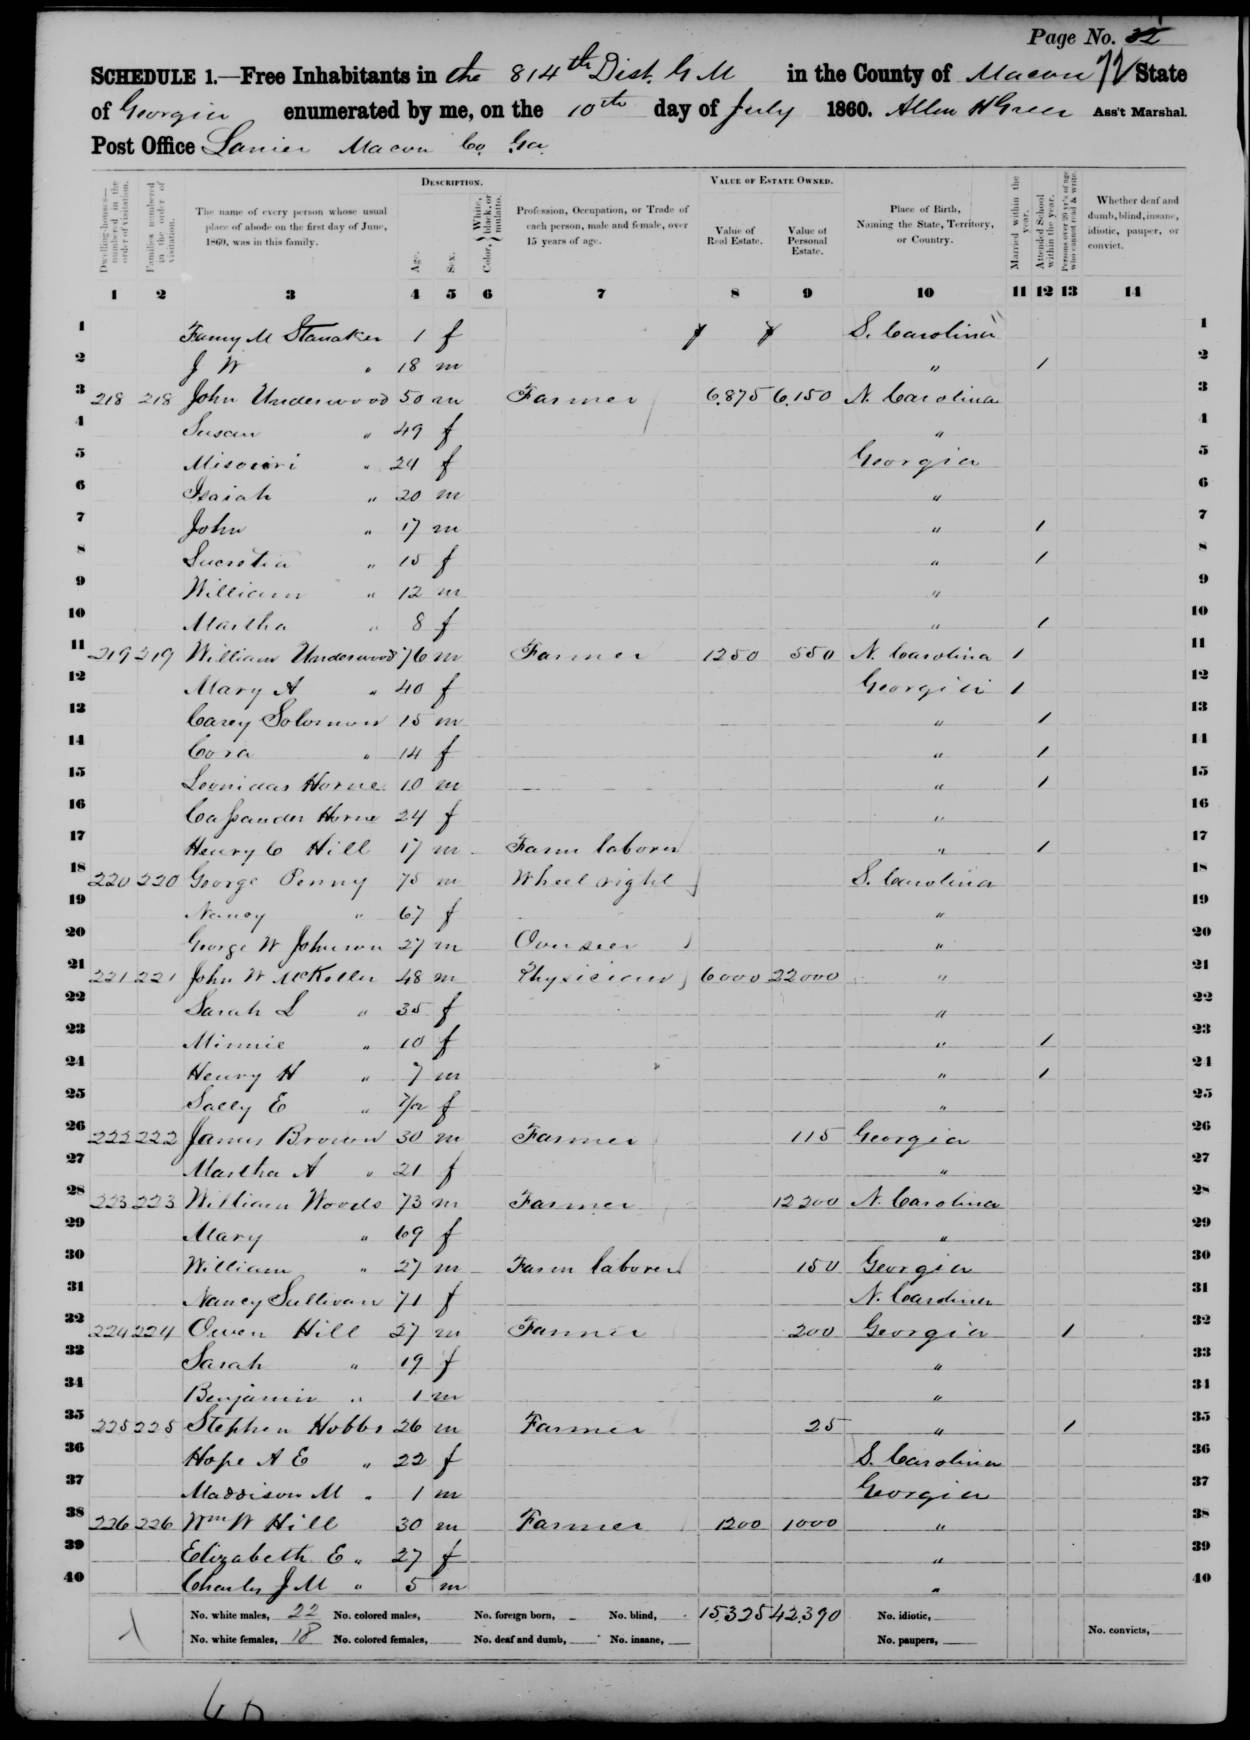 Page No. 32
72
SCHEDULE 1.—Free Inhabitants in the 814th Dist. G M in the County of Macon State
of Georgia enumerated by me, on the 10th day of July 1860. Allen H Greer Ass't Marshal.
Post Office Lanier Macon Co Ga
Dwelling-houses—numbered in the order of visitation. Families numbered in the order of visitation. The name of every person whose usual place of abode on the first day of June, 1860, was in this family. DESCRIPTION. Age. Sex. Color, White, black, or mulatto. Profession, Occupation, or Trade of each person, male and female, over 15 years of age. VALUE OF ESTATE OWNED. Value of Real Estate. Value of Personal Estate. Place of Birth, Naming the State, Territory, or Country. Married within the year. Attended School within the year. Persons over 20 y'rs of age who cannot read & write. Whether deaf and dumb, blind, insane, idiotic, pauper, or convict.
1 2 3 4 5 6 7 8 9 10 11 12 13 14
1 Fanny M 1 f S. Carolina 1
2 J W " 18 m " 1 2
3 218 218 John Underwood 50 m Farmer 6,875 6,150 N. Carolina 3
4 Susan " 49 f " 4
5 Misouri " 24 f Georgia 5
6 Isaiah " 20 m " 6
7 John " 17 m " 1 7
8 Lucretia " 15 f " 1 8
9 William " 12 m " 9
10 Martha " 8 f " 1 10
11 219 219 William Underwood 76 m Farmer 1250 550 N. Carolina 1 11
12 Mary A " 40 f Georgia 1 12
13 Carey Solomon 15 m " 1 13
14 Cora " 14 f " 1 14
15 Leonidas Horne 10 m " 1 15
16 Cassander Horne 24 f " 16
17 Henry C Hill 17 m Farm laborer " 1 17
18 220 220 George Penny 75 m Wheel right S. Carolina 18
19 Nancy " 67 f " 19
20 George W Johnson 27 m Overseer " 20
21 221 221 John W McKeller 48 m Physician 6000 22000 " 21
22 Sarah L " 35 f " 22
23 Minnie " 10 f " 1 23
24 Henry H " 7 m " 1 24
25 Sally E " 7/12 f " 25
26 222 222 James Brown 30 m Farmer 115 Georgia 26
27 Martha A " 21 f " 27
28 223 223 William Woods 73 m Farmer 12200 N. Carolina 28
29 Mary " 69 f " 29
30 William " 27 m Farm laborer 150 Georgia 30
31 Nancy Sullivan 71 f N. Carolina 31
32 224 224 Owen Hill 27 m Farmer 200 Georgia 1 32
33 Sarah " 19 f " 33
34 Benjamin " 1 m " 34
35 225 225 Stephen Hobbs 26 m Farmer 25 " 1 35
36 Hope A E " 22 f S. Carolina 36
37 Maddison M " 1 m Georgia 37
38 226 226 Wm W Hill 30 m Farmer 1200 1000 " 38
39 Elizabeth E " 27 f " 39
40 Charles J M " 5 m " 40
No. white males, 22 No. colored males, No. foreign born, No. blind, 15,325 42,390 No. idiotic,
No. white females, 18 No. colored females, No. deaf and dumb, No. insane, No. paupers, No. convicts,